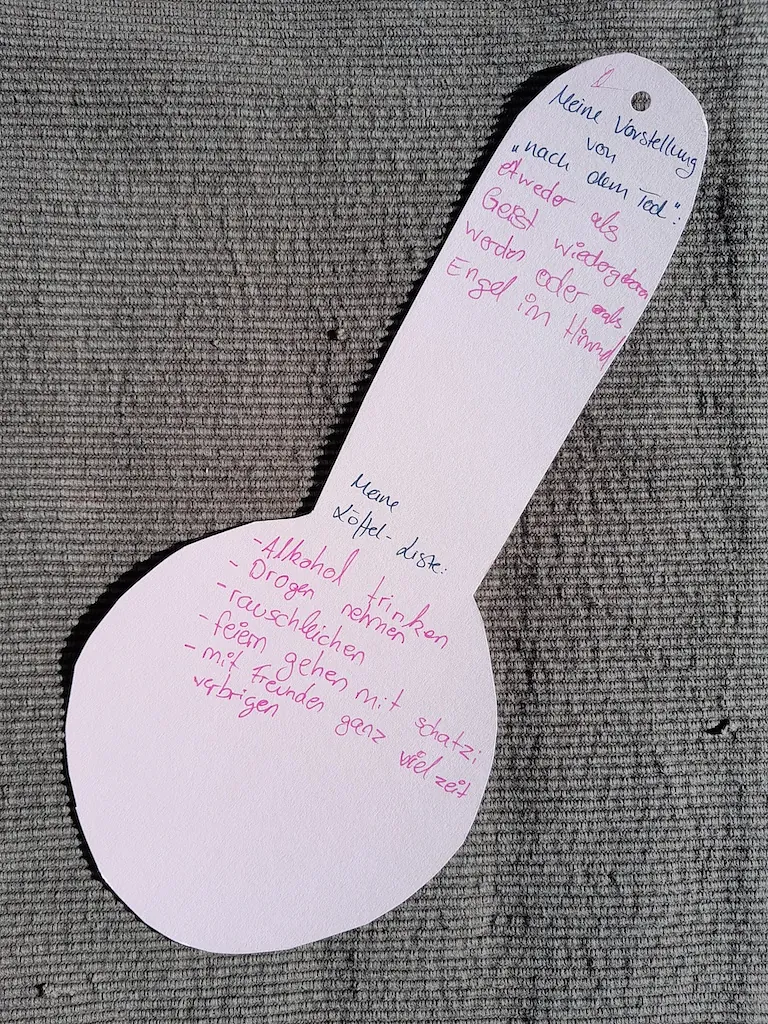 Meine Vorstellung
von
„nach dem Tod":
etweder als
Geist wiedergeboren
werden oder als
Engel im Himmel
Meine
Löffel-Liste:
-Allkohol trinken
- Drogen nehmen
-rauschleichen
-feiern gehen mit schatzi
-mit Freunden ganz viel zeit
verbrigen